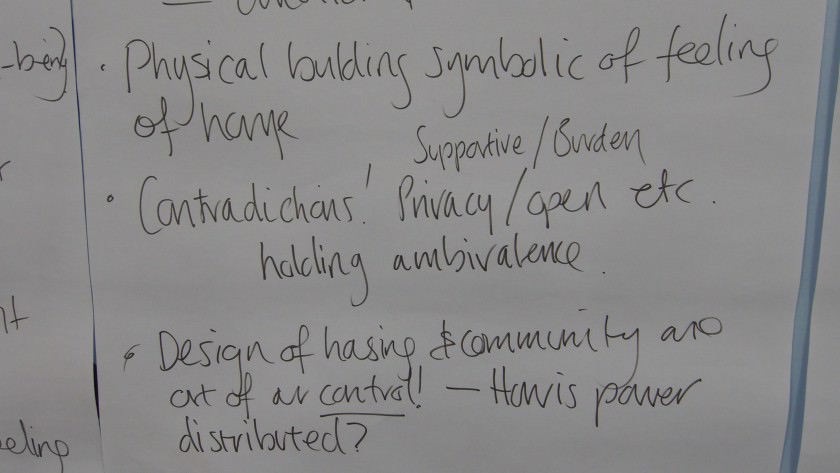 -being)
• Physical building symbolic of feeling
of home
Supportive / Burden
• Contradictions! Privacy / open etc.
holding ambivalence.
• Design of housing & community are
out of our control! — How is power
distributed?
eeling